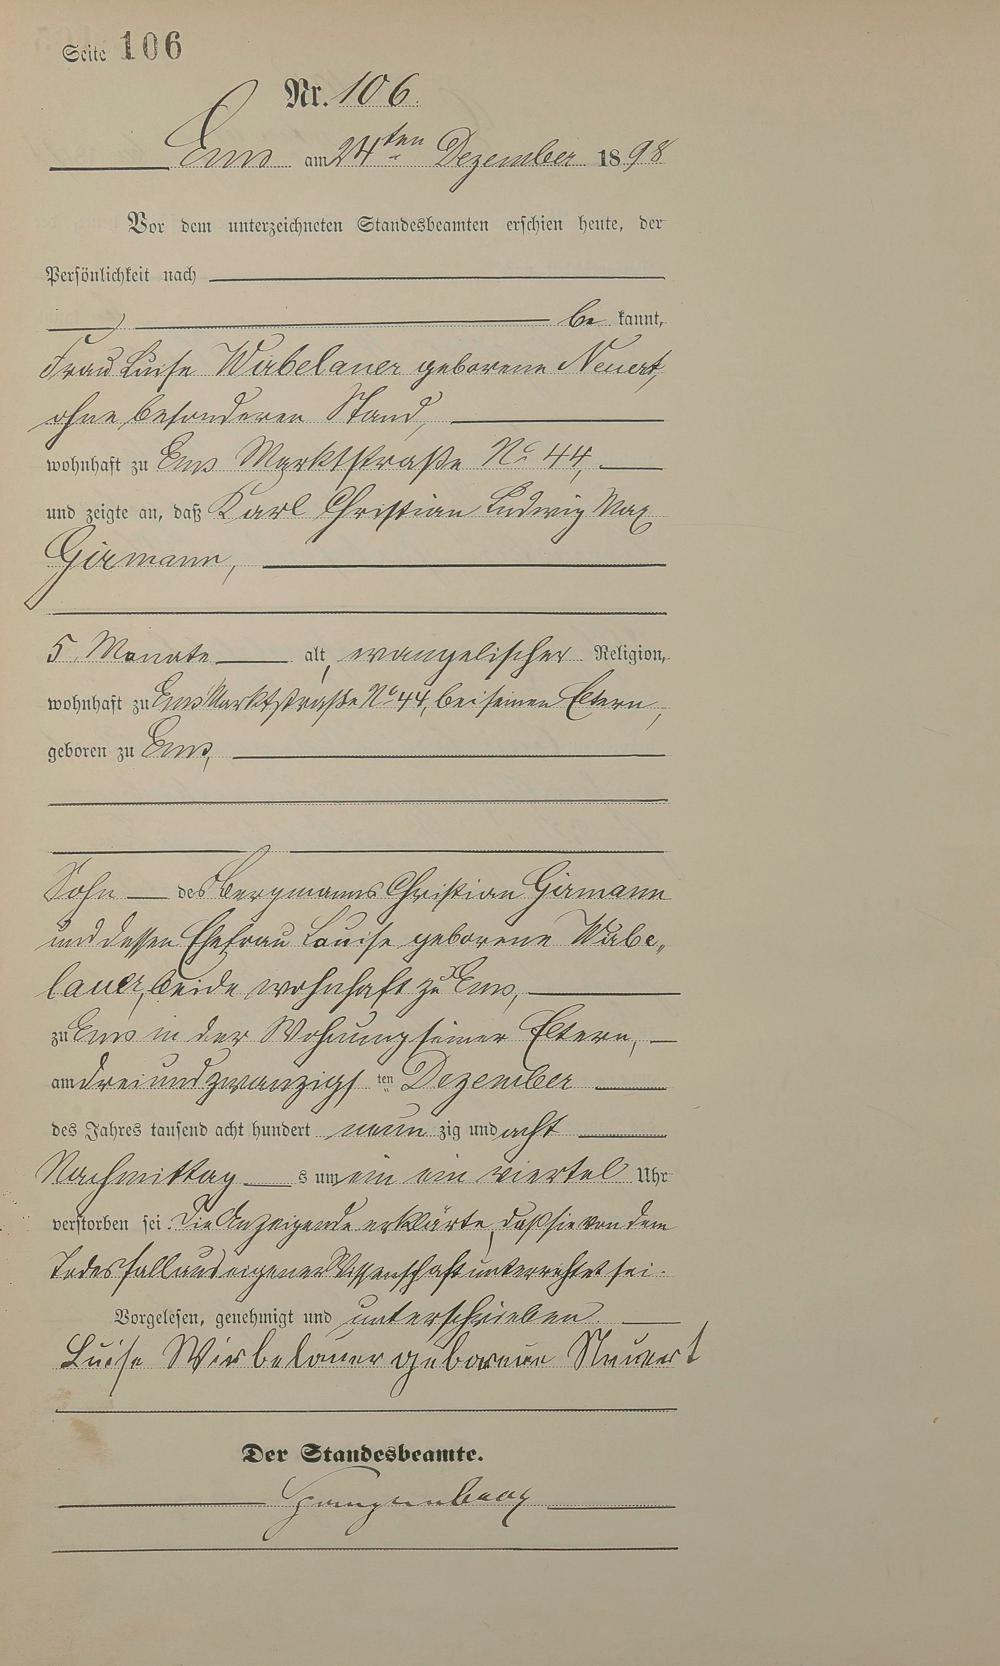 Seite 106
Nr. 106.
Ems am 24ten Dezember 1898
Vor dem unterzeichneten Standesbeamten erschien heute, der
Persönlichkeit nach
be kannt,
Frau Luise Wirbelauer geborene Neuert,
ohne besonderen Stand,
wohnhaft zu Ems Marktstraße No 44,
und zeigte an, daß Karl Christian Ludwig Max
Girmann,
5 Monate alt, evangelischer Religion,
wohnhaft zu Ems Marktstraße No 44, bei seinen Eltern,
geboren zu Ems,
Sohn des Bergmanns Christian Girmann
und dessen Ehefrau Louise geborene Wirbe„
lauer, beide wohnhaft zu Ems,
zu Ems in der Wohnung seiner Eltern,
am dreiundzwanzigs ten Dezember
des Jahres tausend acht hundert neun zig und acht
Nachmittag s um ein ein viertel Uhr
verstorben sei. Die Anzeigende erklärte, daß sie von dem
Todesfall aus eigener Wissenschaft unterrichtet sei.
Vorgelesen, genehmigt und unterschrieben.
Luise Wirbelauer geborene Neuert
Der Standesbeamte.